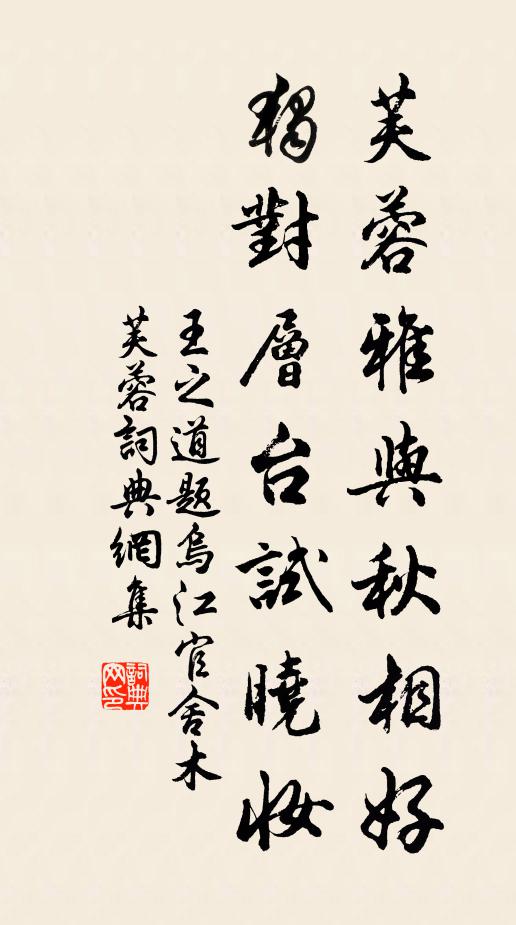 芙蓉雅與秋相好
獨對層台試曉妝
王之道題烏江官舍木
芙蓉詞典網集
詞典
网印